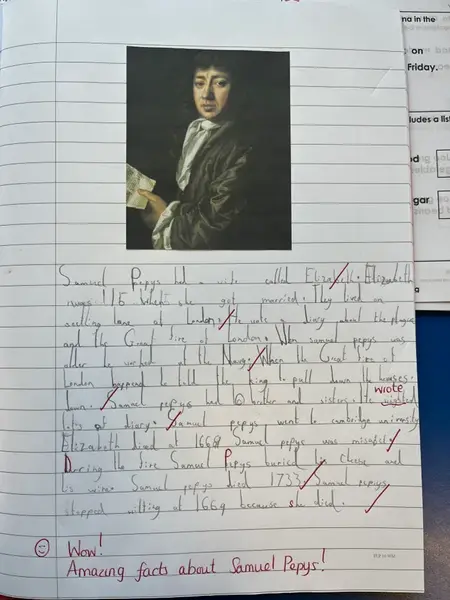 na in the
on
Friday.
ludes a list
gar
Samuel Pepys had a wife called Elizabeth. Elizabeth
was 15 when she got married. They lived on
lane at London. He wote a diary about the plague
and the Great fire of London. When samuel pepys was
older he worked at the Navy. When the Great fire of
London happend he told the king to pull down the houses.
down. Samuel pepys had and sisters. He wrote
lots of diary. Samuel pepys went to cambridge univeristy
Elizabeth died at 1669 Samuel pepys was
During the fire Samuel Pepys buried his cheese and
his wine. Samuel pepys died 1733. Samuel pepys
stopped witting at 1669 because she died.
Wow!
Amazing facts about Samuel Pepys!